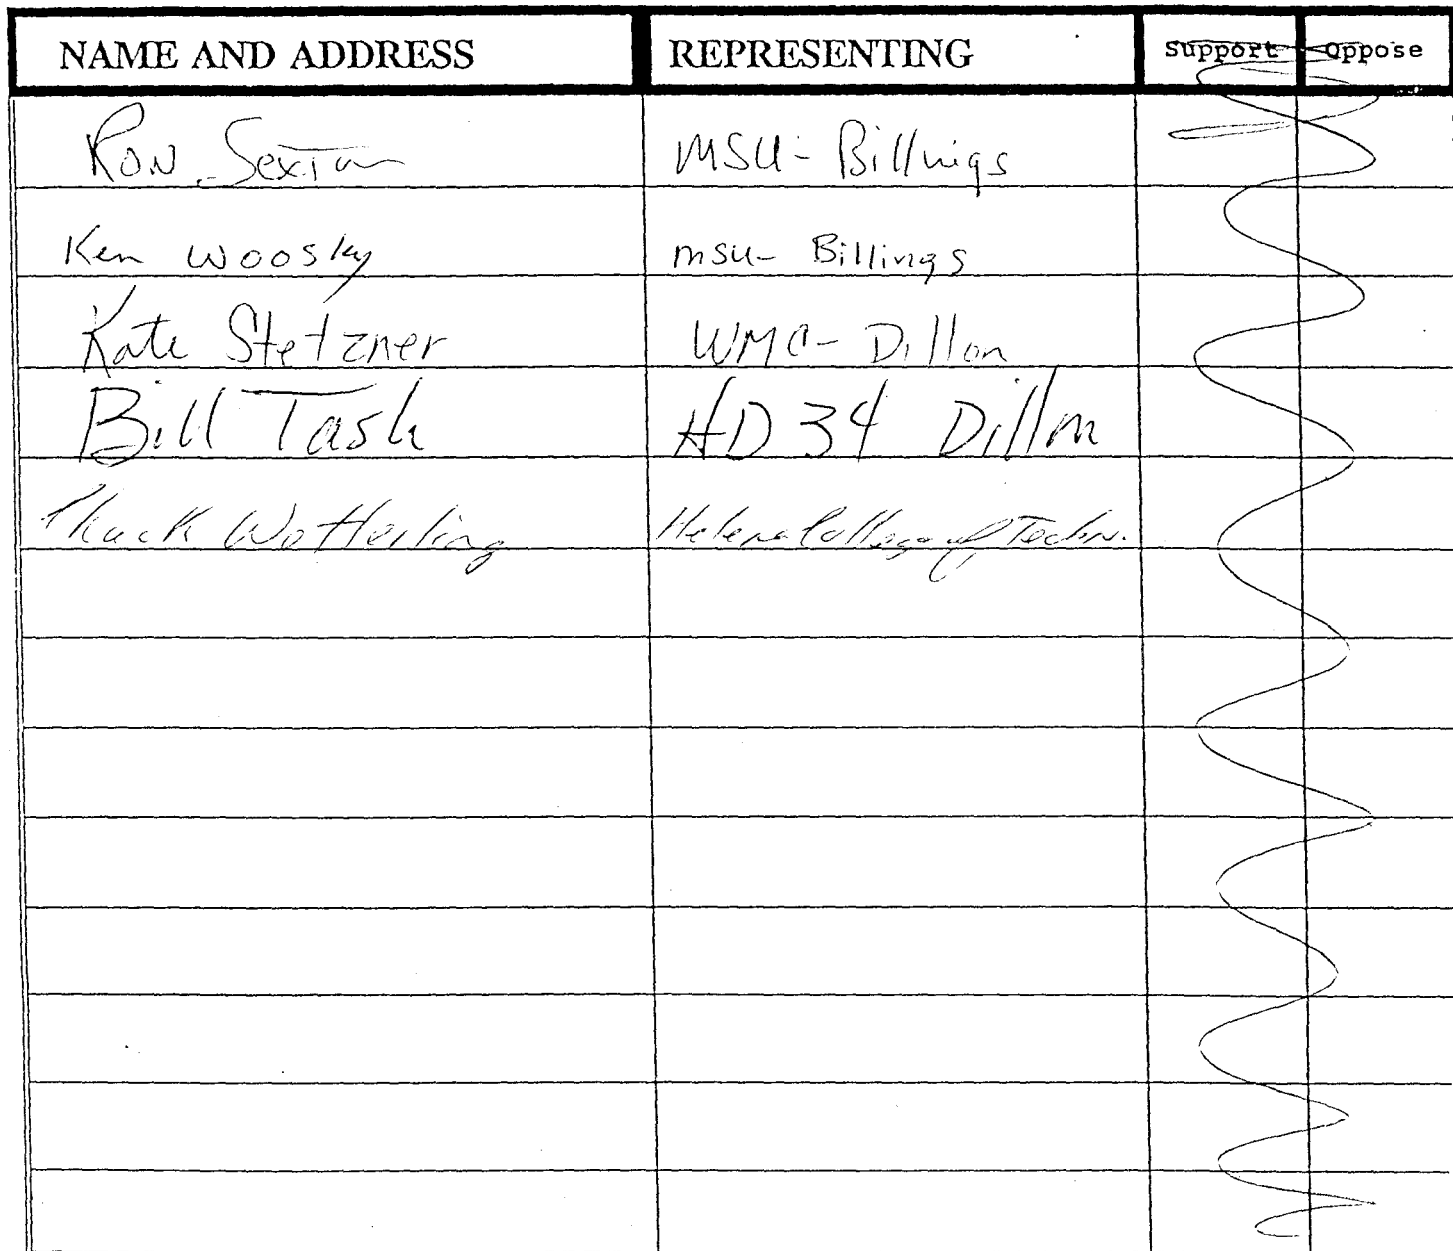 NAME AND ADDRESS REPRESENTING Support Oppose
Ron Sexton MSU- Billings
Ken Woosley MSU- Billings
Kate Stetzner WMC- Dillon
Bill Tash HD 34 Dillon
Wetterling Helena College of Techn.